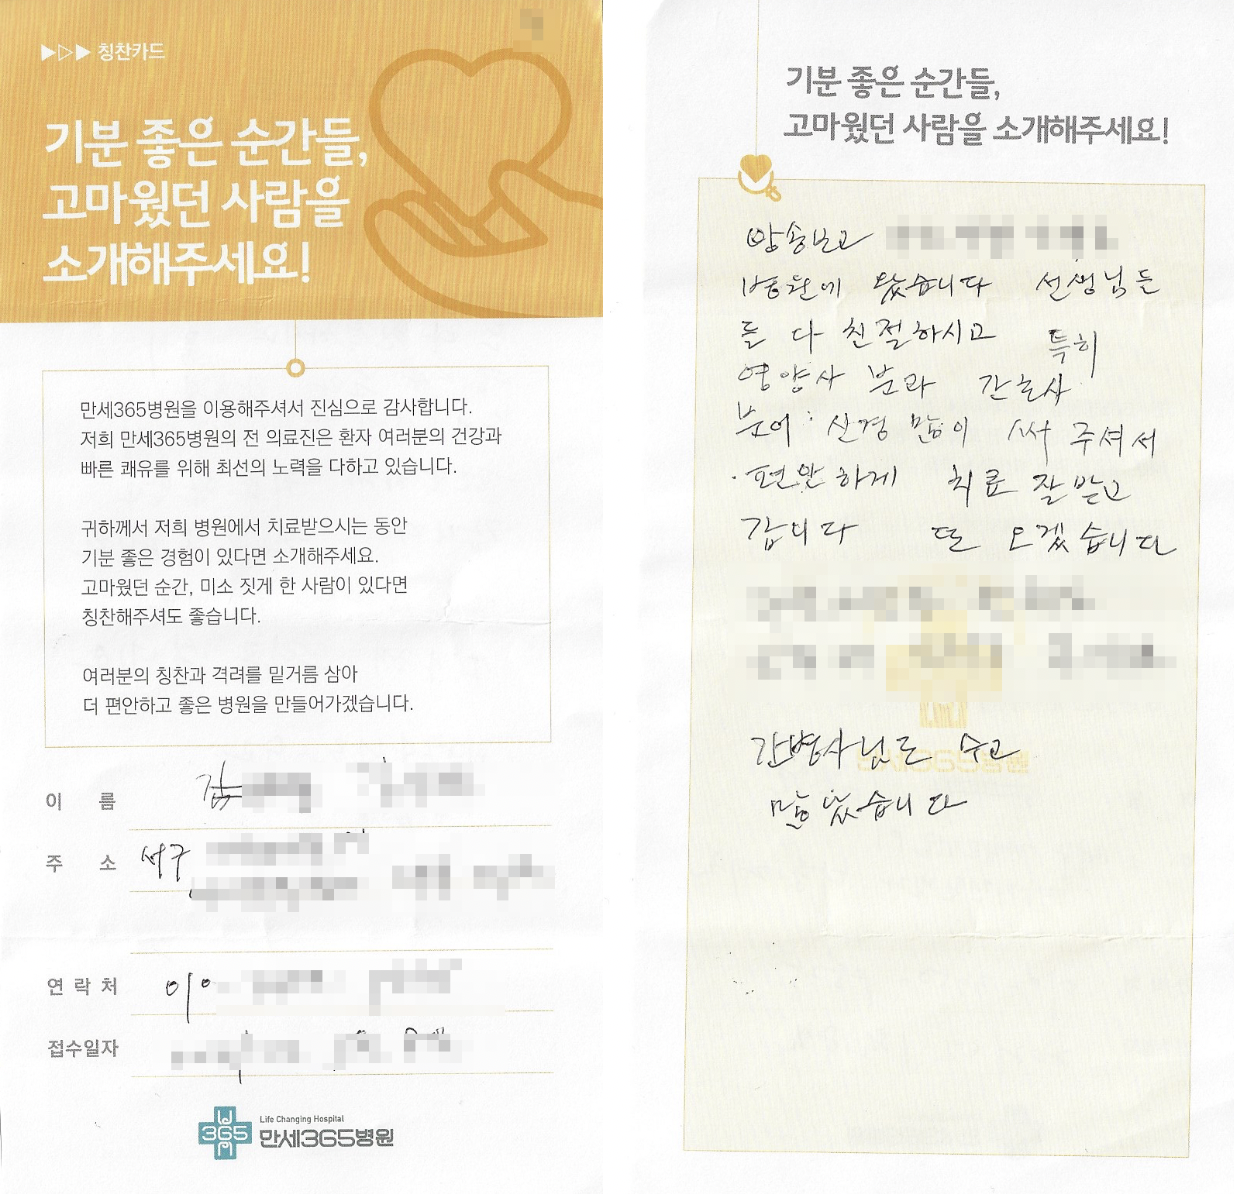 ▶▷▶ 칭찬카드
기분 좋은 순간들,
고마웠던 사람을
소개해주세요!
만세365병원을 이용해주셔서 진심으로 감사합니다.
저희 만세365병원의 전 의료진은 환자 여러분의 건강과
빠른 쾌유를 위해 최선의 노력을 다하고 있습니다.
귀하께서 저희 병원에서 치료받으시는 동안
기분 좋은 경험이 있다면 소개해주세요.
고마웠던 순간, 미소 짓게 한 사람이 있다면
칭찬해주셔도 좋습니다.
여러분의 칭찬과 격려를 밑거름 삼아
더 편안하고 좋은 병원을 만들어가겠습니다.
이 름 김
주 소 서구
연락처 010
접수일자
365
Life Changing Hospital
만세365병원
기분 좋은 순간들,
고마웠던 사람을 소개해주세요!
방송보고
병원에 왔습니다 선생님들
들 다 친절하시고 특히
영양사 분과 간호사
분이 신경 많이 써 주셔서
편안하게 치료 잘 받고
갑니다 또 오겠습니다
간병사님도 수고
많았습니다